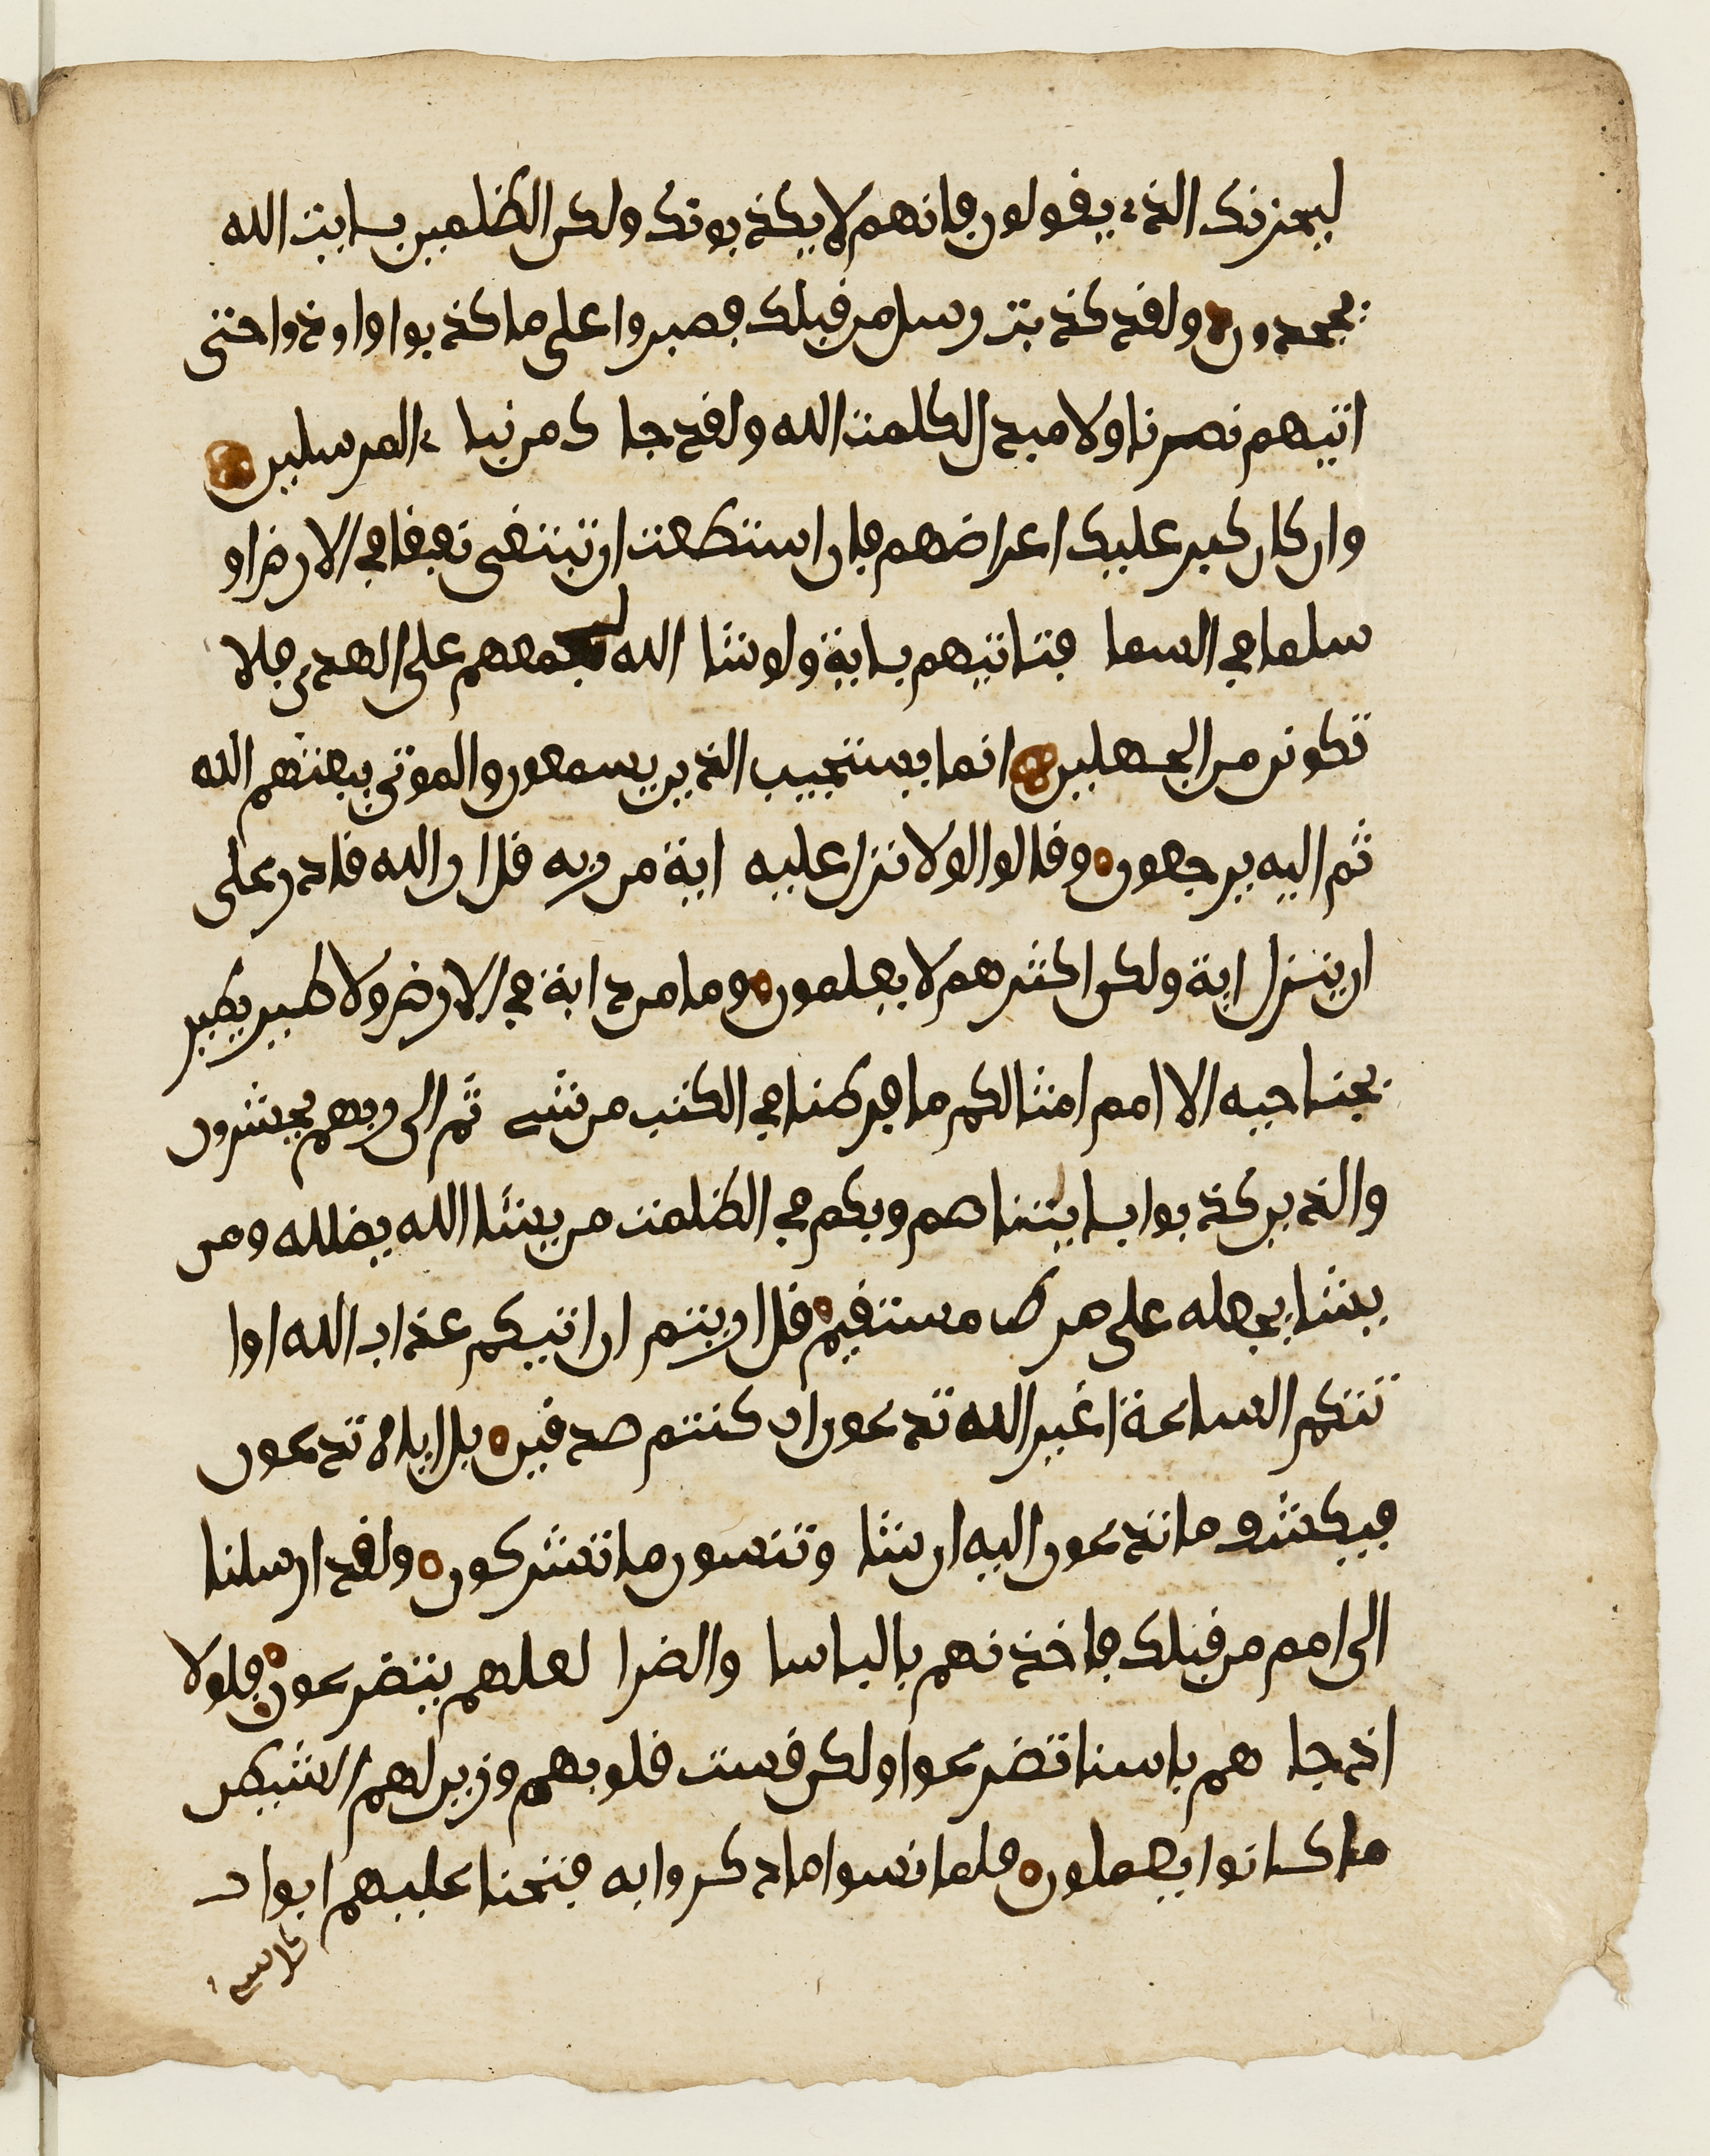 ليحزنك الذے يقولون فانهم لا يكذبونك ولكن الظلمين بـايت الله
يجحدون ولقد كذبت رسل من قبلك فصبروا على ما كذبوا واوذوا حتى
اتيهم نصرنا ولا مبدل لكلمت الله ولقد جا ك من نباے المرسلين
وان كان كبر عليك اعراضهم فان استطعت ان تبتغى نفقا في الارض او
سلما في السما فتاتيهم بـاية ولو شا الله لجمعهم على الهدى فلا
تكونن من الجهلين انما يستجيب الذين يسمعون والموتى يبعثهم الله
ثم اليه يرجعون وقالوا لولا نزل عليه اية من ربه قل ان الله قادر على
ان ينزل اية ولكن اكثرهم لا يعلمون وما من دابة في الارض ولا طير يطير
بجناحيه الا امم امثالكم ما فرطنا في الكتب من شے ثم الى ربهم يحشرون
والذين كذبوا بـايتنا صم وبكم في الظلمت من يشا الله يضلله ومن
يشا يجعله على صرط مستقيم قل اريتم ان اتيكم عذاب الله او ا
تتكم الساعة اغير الله تدعون ان كنتم صدقين بل اياه تدعون
فيكشف ما تدعون اليه ان شا وتنسون ما تشركون ولقد ارسلنا
الى امم من قبلك فاخذنهم بالباسا والضرا لعلهم يتضرعون فلولا
اذ جا هم باسنا تضرعوا ولكن قست قلوبهم وزين لهم الشيطن
ما كانوا يعملون فلما نسوا ما ذكروا به فتحنا عليهم ابواب